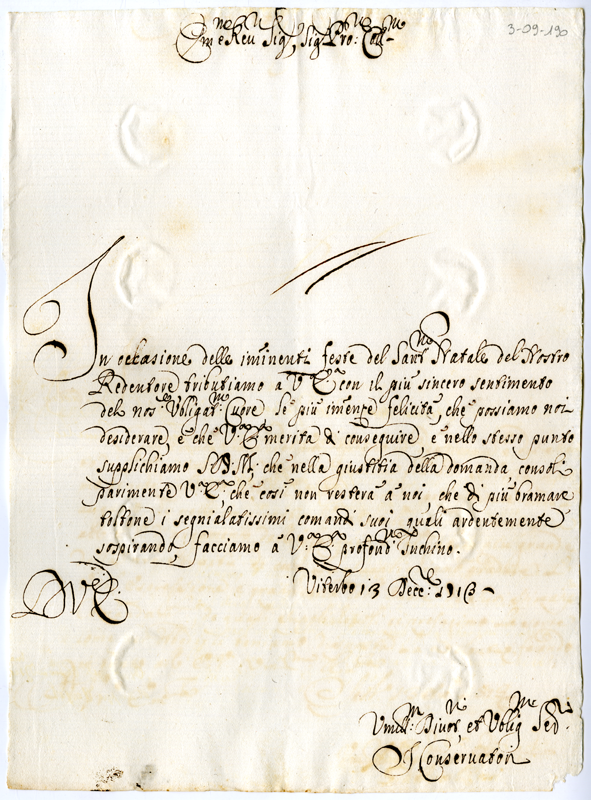 3-09-190
Em.mo e Rev.mo Sig.r, Sig.r Pro.ne Coll.mo
In occasione delle iminenti feste del Sant.mo Natale del Nostro
Redentore tributiamo à V.ra E.a con il più sincero sentimento
del nos.o Vbligat.mo Cuore le più imense felicità, che possiamo noi
desiderare, e che V.ra E.a merita di conseguire e nello stesso punto
supplichiamo S.D.M. che nella giustitia della domanda consoli
parimente V.ra E.a che così non resterà à noi che di più bramare
toltone i segnialatissimi comandi suoi quali ardentemente
sospirando, facciamo à V.ra E.a profond.mo Inchino.
D V.E.
Viterbo 13 Dec.e
Vmil.mi Divot.mi et Vblig.mi Ser.ri
I Conservatori